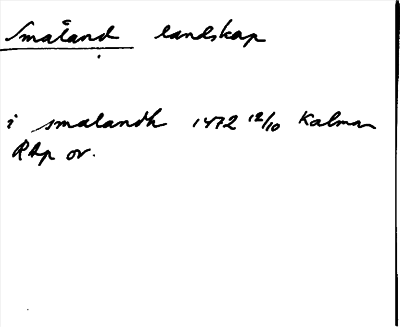 Småland landskap
i smalandh 1472 12/10 Kalmar
RAp or.